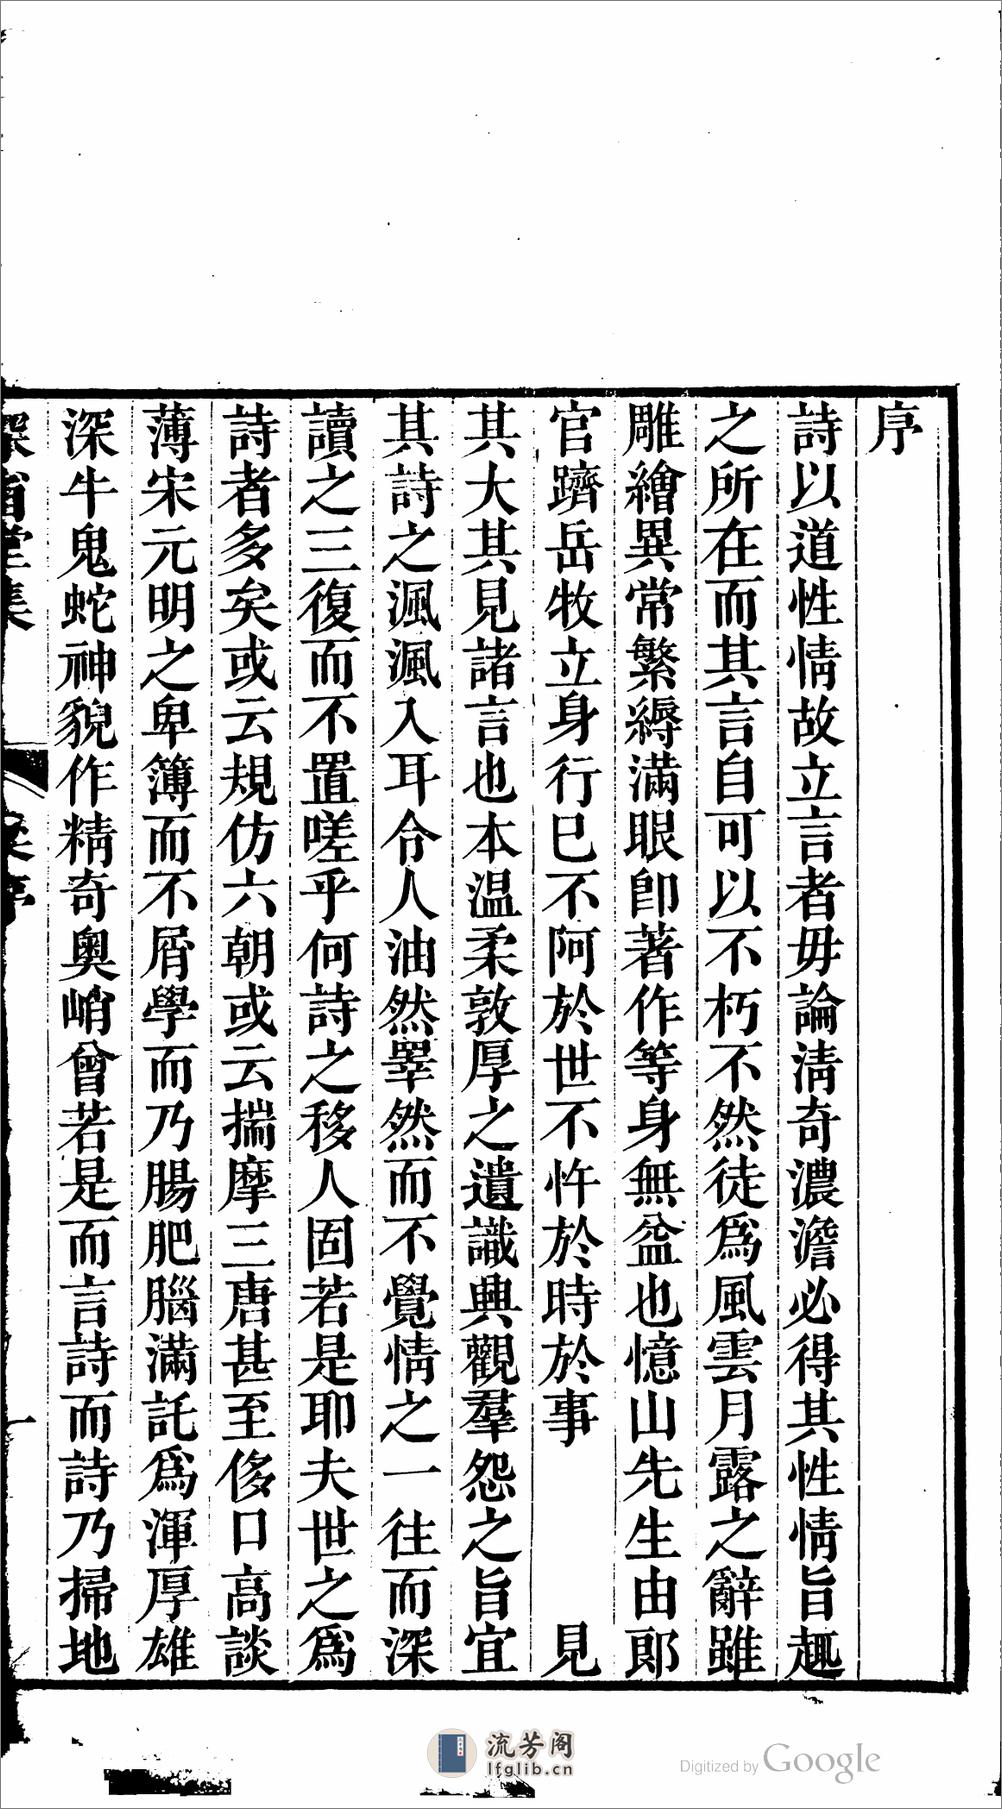 序
詩以道性情故立言者毋論淸奇濃澹必得其性情旨趣
之所在而其言自可以不朽不然徒爲風雲月露之辭雖
雕繪異常繁縟滿眼卽著作等身無益也憶山先生由郎
官躋岳牧立身行已不阿於世不忤於時於事　　　見
其大其見諸言也本温柔敦厚之遺識興觀羣怨之旨宜
其詩之渢渢入耳令人油然睪然而不覺情之一往而深
讀之三復而不置嗟乎何詩之移人固若是耶夫世之爲
詩者多矣或云規仿六朝或云揣摩三唐甚至侈口高談
薄宋元明之卑簿而不屑學而乃腸肥腦滿託爲渾厚雄
深牛鬼蛇神貌作精奇奧峭曾若是而言詩而詩乃掃地
堂集
序
一
流芳阁
lfglib.cn
Digitized by Google